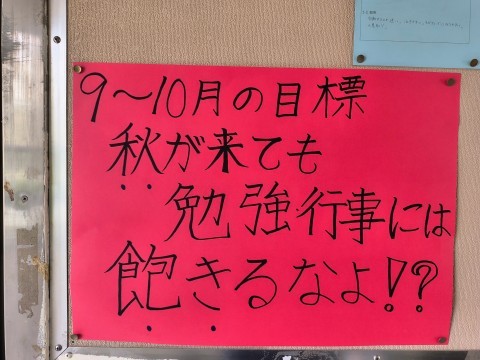 9〜10月の目標
秋が来ても
勉強行事には
飽きるなよ!?